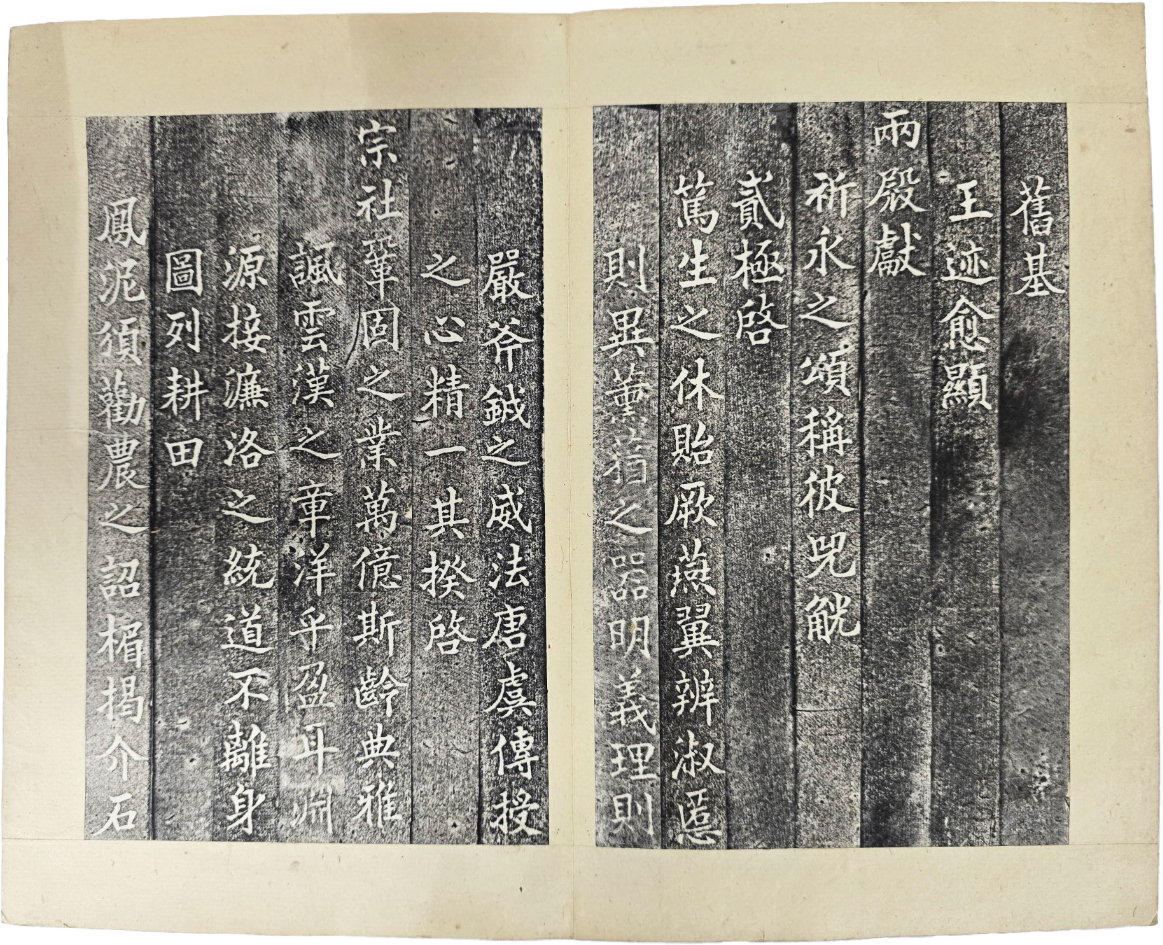 舊基
王迹愈顯
兩殿獻
祈永之頌稱彼兕觥
貳極啓
篤生之休貽厥燕翼辨淑慝
則異薰蕕之器明義理則
嚴斧鉞之威法唐虞傳授
之心精一其揆啓
宗社鞏固之業萬億斯齡典雅
諷雲漢之章洋乎盈耳淵
源接濂洛之統道不離身
圖列耕田
鳳泥須勸農之詔楣揭介石